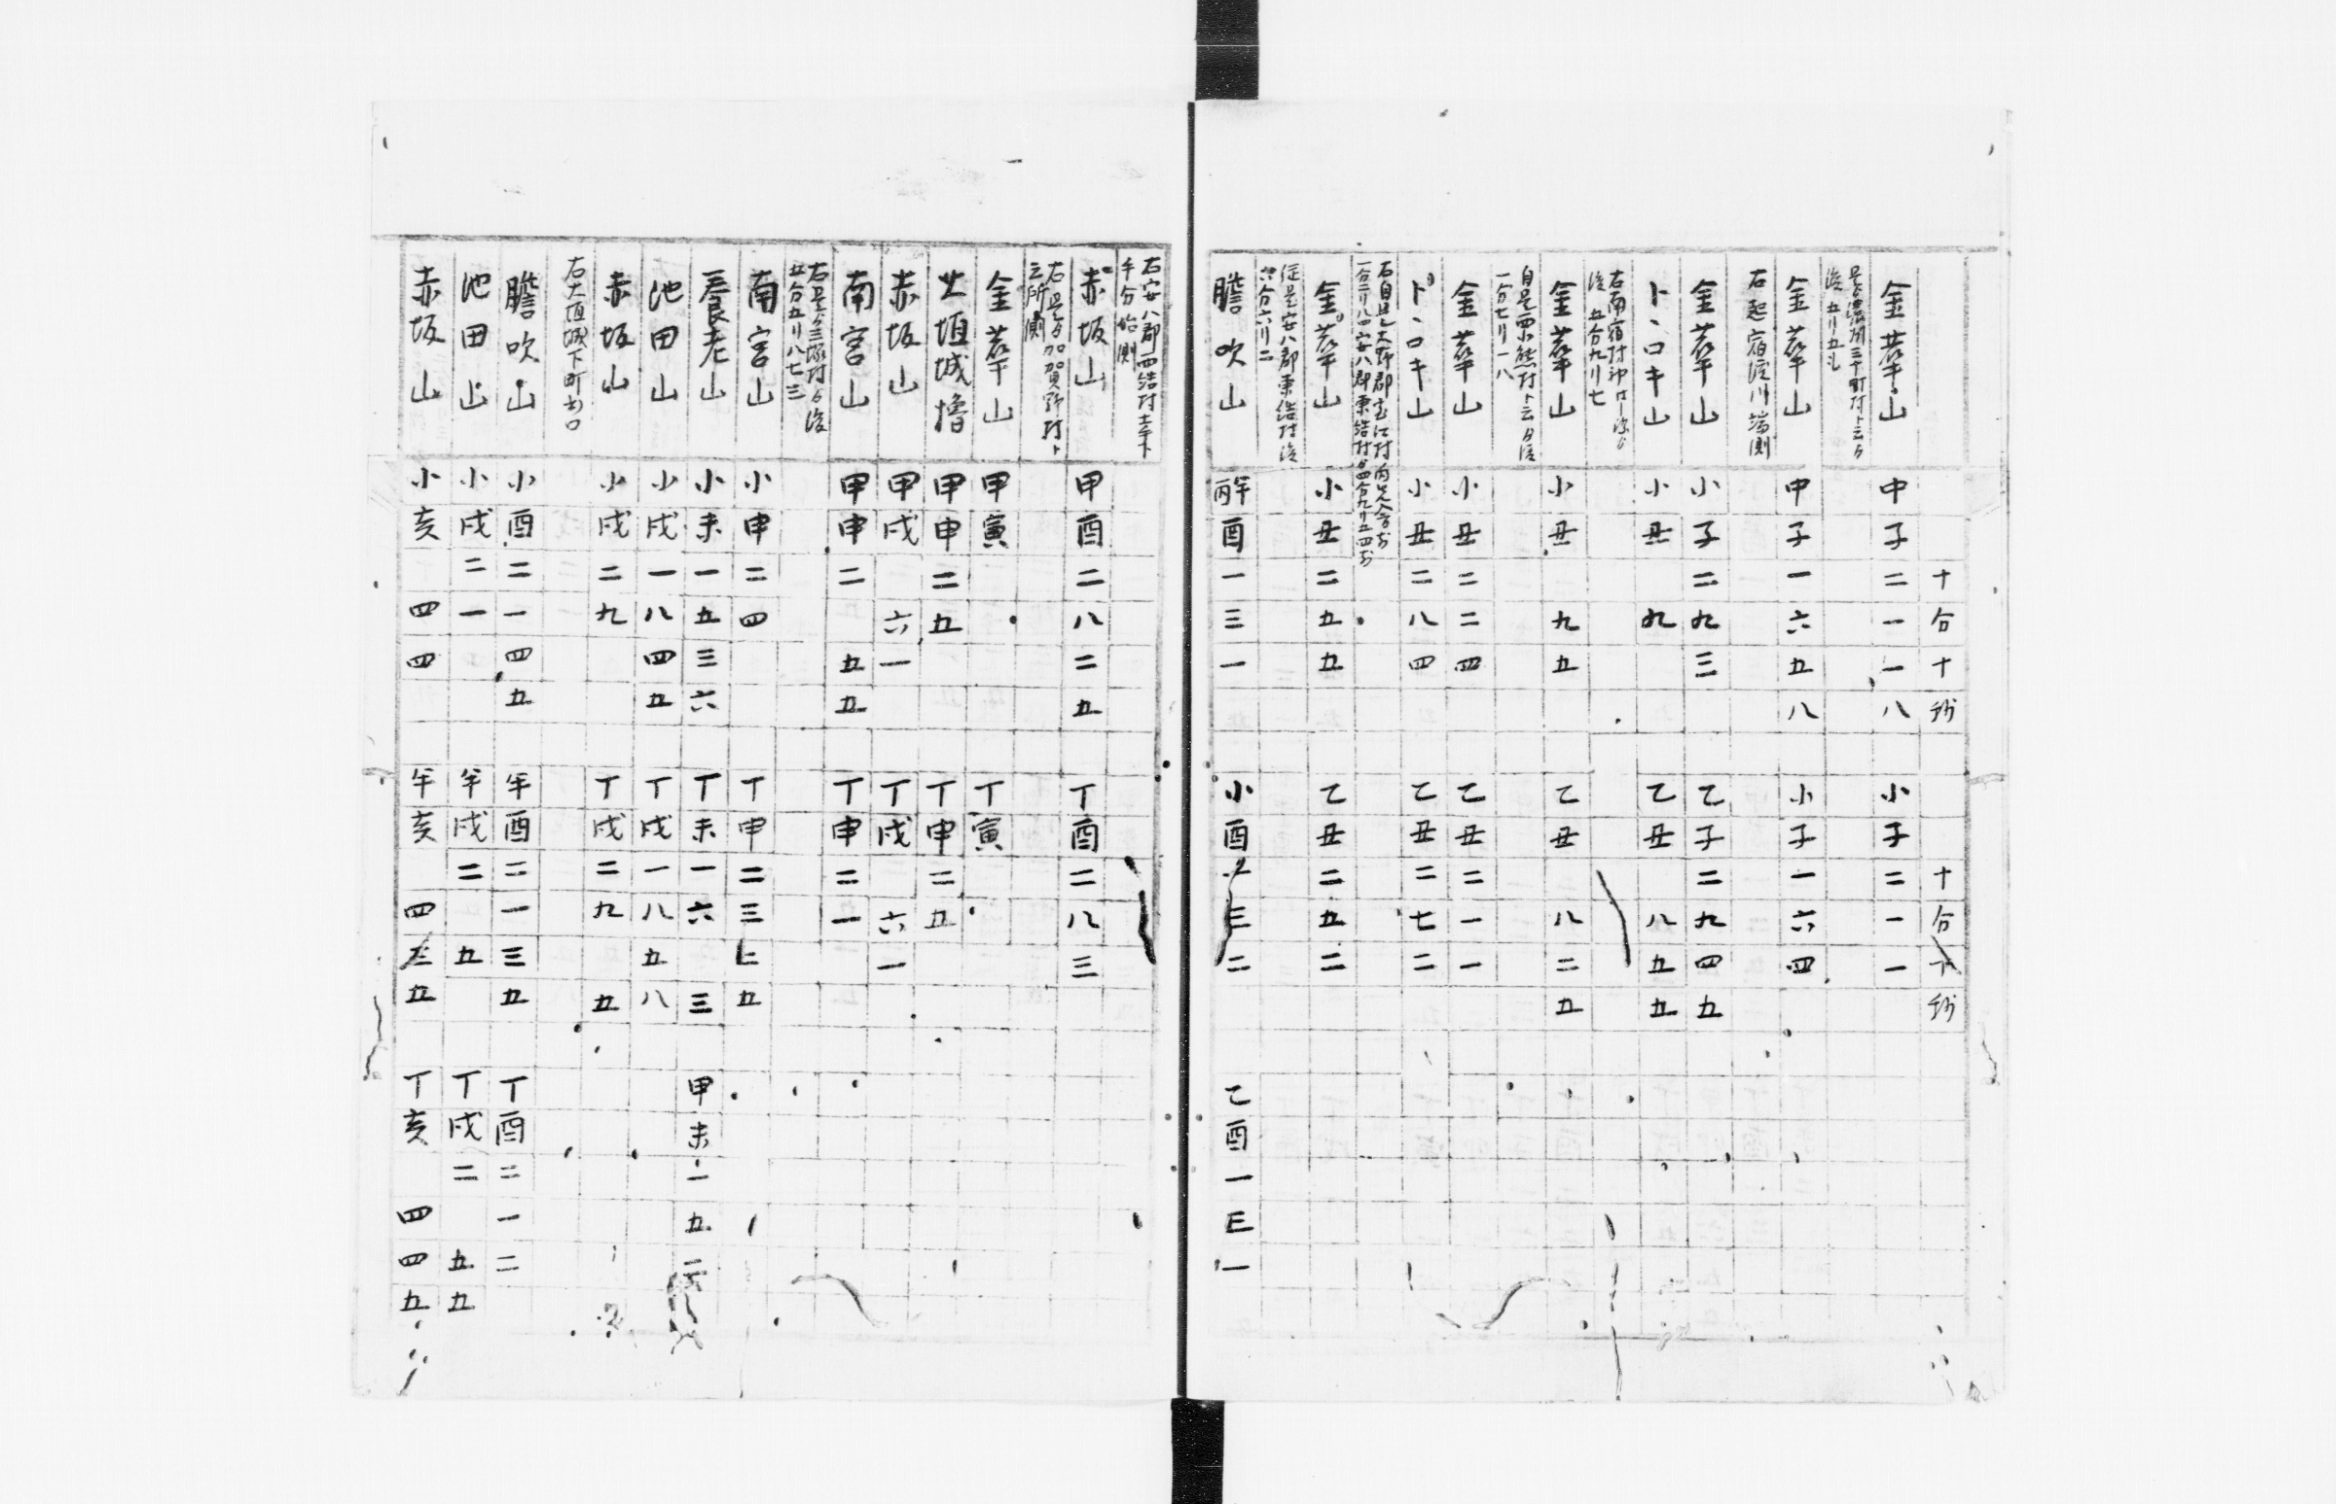 十 合 十 秒 十 合 十 秒
金華山 中 子 二 一 一 八 小 子 二 一 一
金華山 甲 子 一 六 五 八 小 子 一 六 四
右起宿渡川端側
金華山 小 子 二 九 三 乙 子 二 九 四 五
トヽロキ山 小 丑 九 乙 丑 八 五 五
後 五分九リ七
金華山 小 丑 九 五 乙 丑 八 二 五
自是西小熊村ト云ゟ後
一分七リ一八
金華山 小 丑 二 二 四 乙 丑 二 一 一
トヽロキ山 小 丑 二 八 四 乙 丑 二 七 二
金華山 小 丑 二 五 五 乙 丑 二 五 二
従是安八郡東結村後
六分六リ二
膽吹山 丙午 酉 一 三 一 小 酉 三 二 乙 酉 一 三 一
右安八郡西結村
赤坂山 甲 酉 二 八 二 五 丁 酉 二 八 三
右是ゟ加賀野村ト
云所側
金華山 甲 寅 丁 寅
大垣城櫓 甲 申 二 五 丁 申 二 五
赤坂山 甲 戌 六 一 丁 戌 六 一
南宮山 甲 申 二 五 五 丁 申 二 一
右是ゟ三塚村ゟ後
五分五リ八七三
南宮山 小 申 二 四 丁 申 二 三 七 五
養老山 小 未 一 五 三 六 丁 未 一 六 三 甲 未 一 五 二
池田山 小 戌 一 八 四 五 丁 戌 一 八 五 八
赤坂山 小 戌 二 九 丁 戌 二 九 五
右大垣城下町出口
膽吹山 小 酉 二 一 四 五 午 酉 二 一 三 五 丁 酉 二 一 二
池田山 小 戌 二 一 午 戌 二 五 丁 戌 二 五 五
赤坂山 小 亥 四 四 午 亥 四 三 五 丁 亥 四 四 五